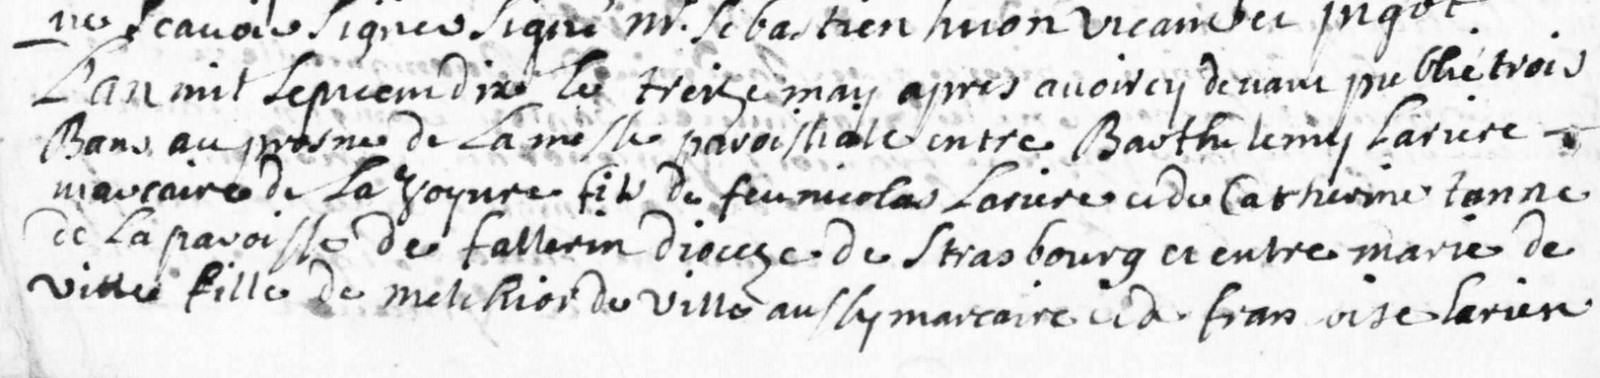 ne scavoir signer signé m. sebastien huon vicaire et pigot
L'an mil septcent dix le treize may apres avoir cy devant publié trois
Bans au prosne de La messe paroissiale entre Barthelemy Lariere
marcaire de La Joyure fils de feu nicolas Lariere et de Catherine tanne
de La paroisse de fallerin dioceze de strasbourg et entre marie de
ville fille de melchior de ville aussy marcaire et de francoise larier